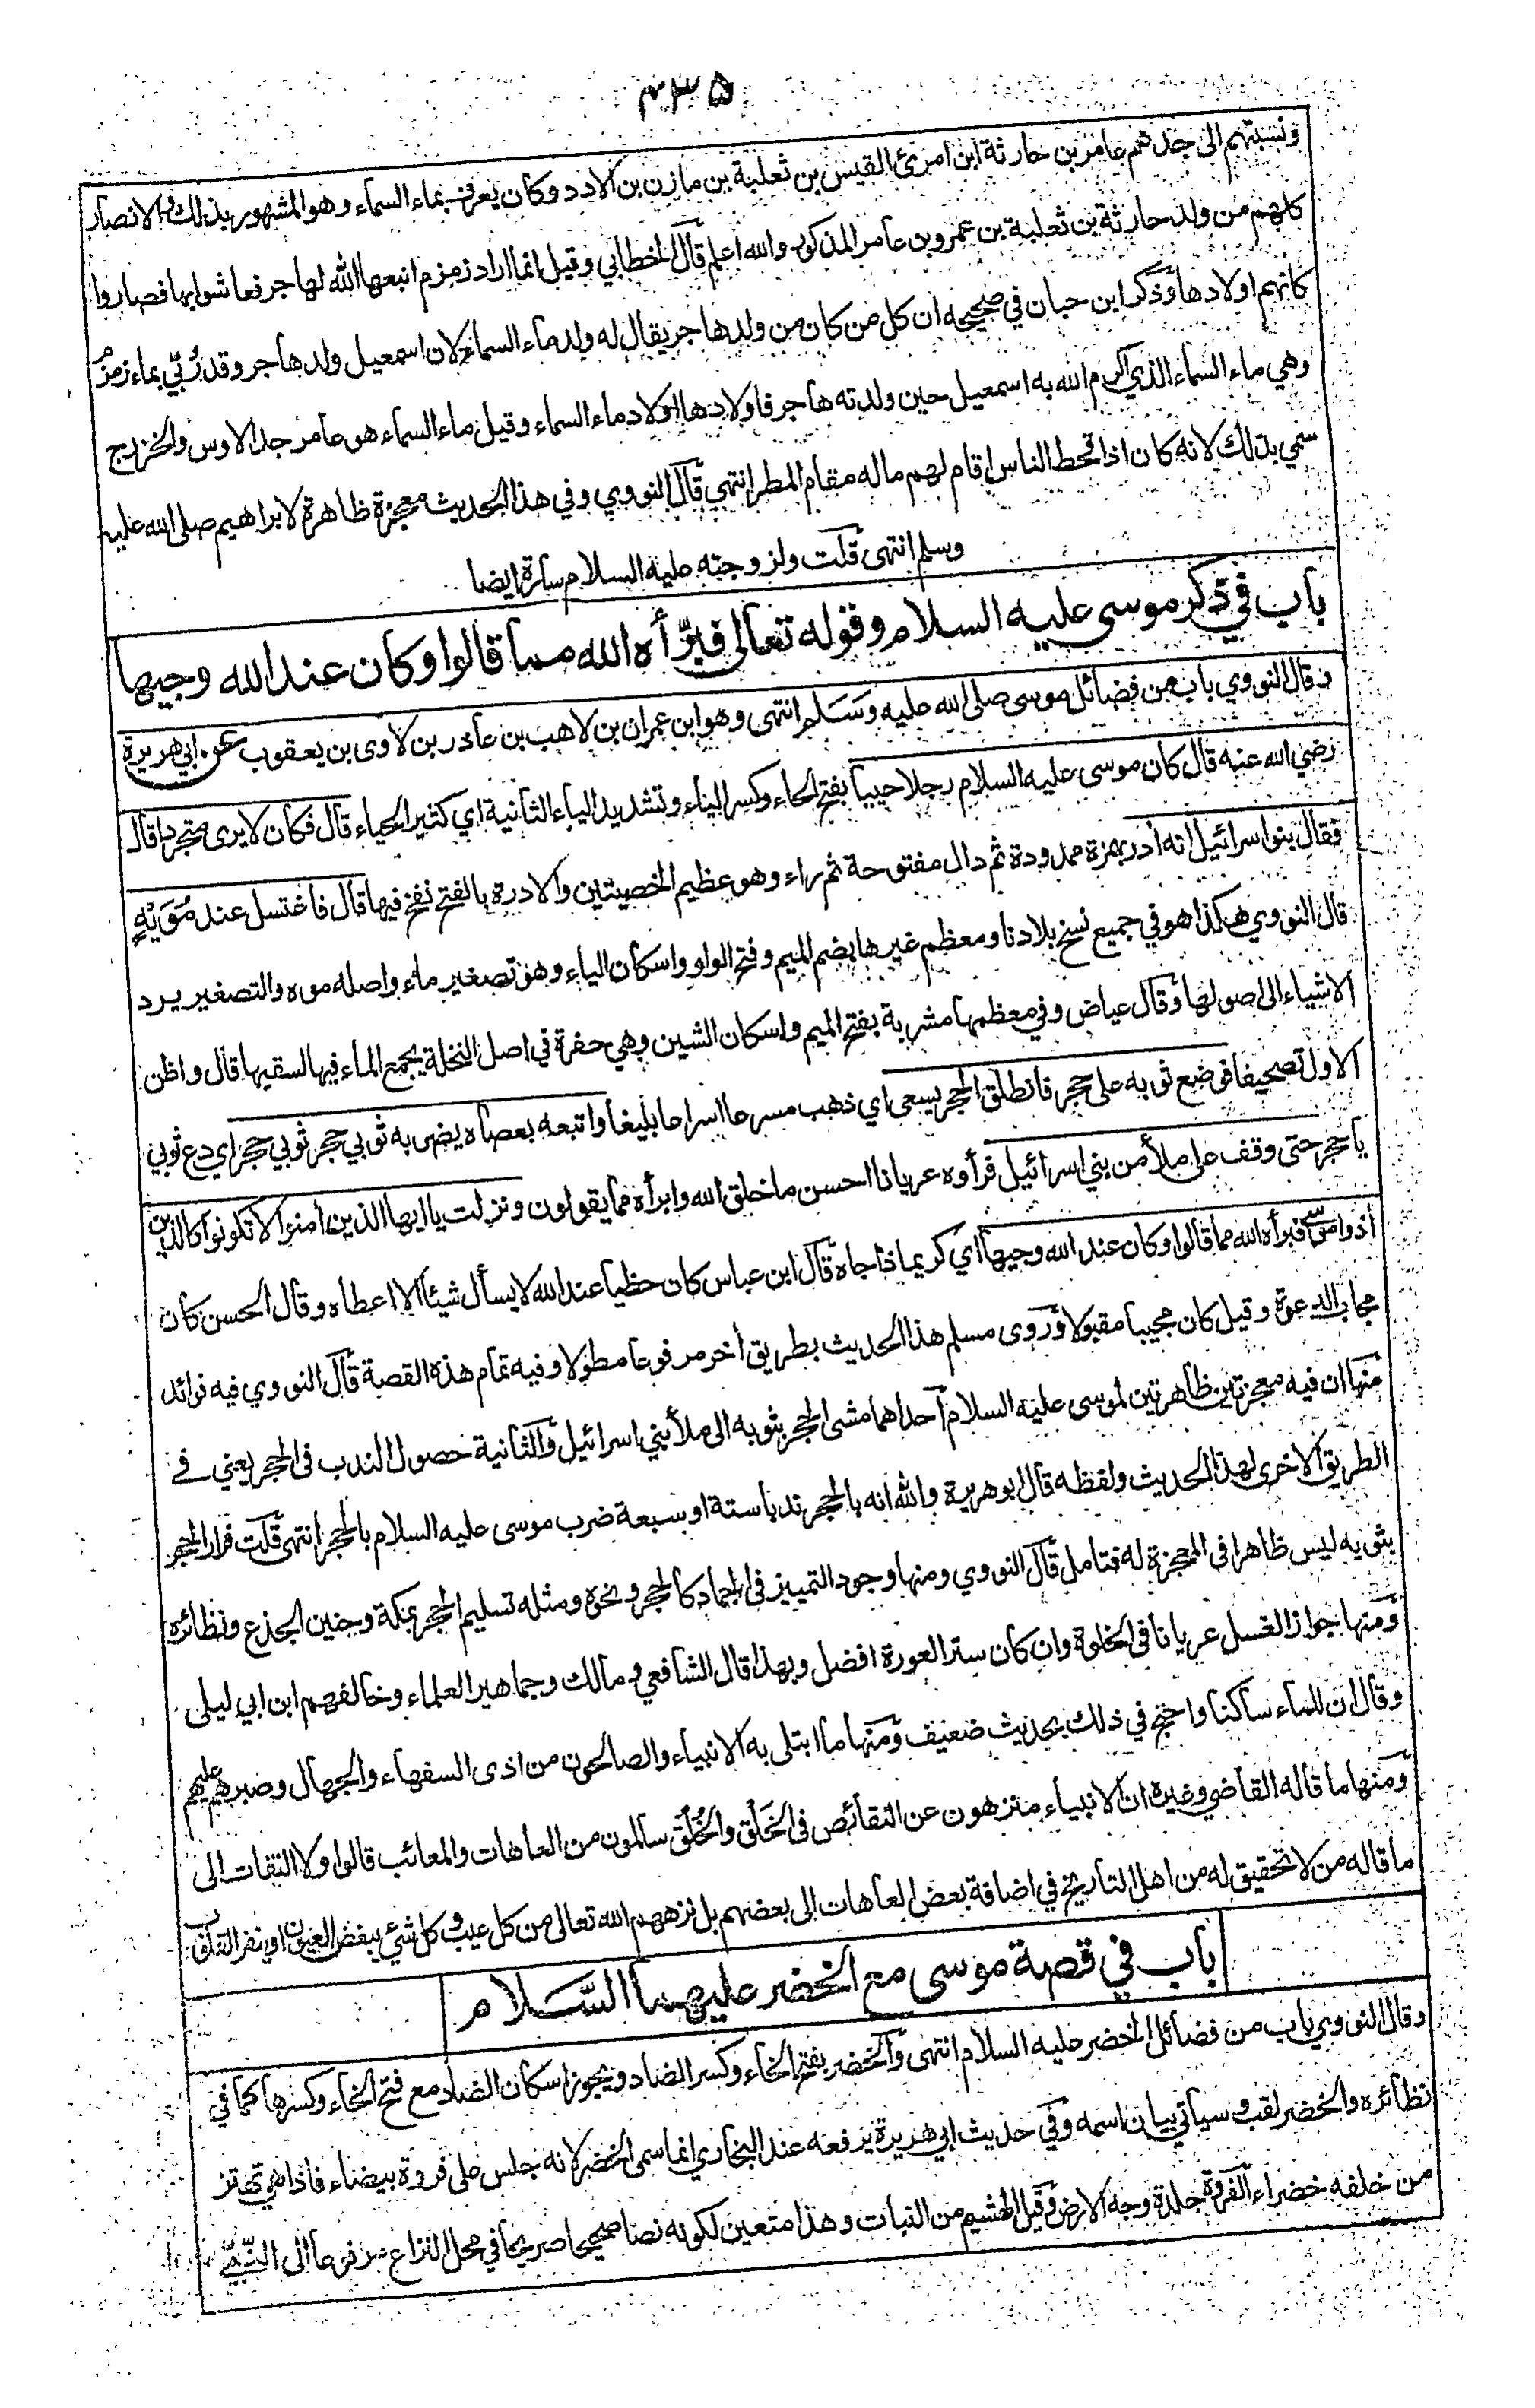 ۴۳۵
ونسبتهم الى جدهم عامر بن حارثة ابن امرئ القيس بن ثعلبة بن مازن بن الادد وكان يعرف بماء السماء وهو المشهور بذلك والانصار
كلهم من ولد حارثة بن ثعلبة بن عمرو بن عامر المذكور والله اعلم قال الخطابي وقيل انما اراد زمزم انبعها الله لهاجر فعاشوا بها فصاروا
كانهم اولادها وذكر ابن حبان في صحيحه ان كل من كان من ولد هاجر يقال له ولد ماء السماء لان اسمعيل ولد هاجر وقد رُبّي بماء زمزم
وهي ماء السماء الذي اكرم الله به اسمعيل حين ولدته هاجر فاولادها اولاد ماء السماء وقيل ماء السماء هو عامر جد الاوس والخزرج
سمي بذلك لانه كان اذا قحط الناس اقام لهم ماله مقام المطر انتهى قال النووي وفي هذا الحديث معجزة ظاهرة لابراهيم صلى الله عليه
وسلم انتهى قلت ولزوجته عليه السلام سارة ايضا
باب في ذكر موسى عليه السلام وقوله تعالى فبرّأه الله مما قالوا وكان عند الله وجيها
وقال النووي باب من فضائل موسى صلى الله عليه وسلم انتهى وهو ابن عمران بن لاهب بن عاذر بن لاوى بن يعقوب عن ابي هريرة
رضي الله عنه قال كان موسى عليه السلام رجلا حييا بفتح الحاء وكسر الياء وتشديد الياء الثانية اي كثير الحياء قال فكان لا يرى متجردا قال
فقال بنو اسرائيل انه آدر بهمزة ممدودة ثم دال مفتوحة ثم راء وهو عظيم الخصيتين والادرة بالفتح نفخ فيها قال فاغتسل عند مُوَيْهٍ
قال النووي هكذا هو في جميع نسخ بلادنا ومعظم غيرها بضم الميم وفتح الواو واسكان الياء وهو تصغير ماء واصله موه والتصغير يرد
الاشياء الى اصولها وقال عياض وفي معظمها مشربة بفتح الميم واسكان الشين وهي حفرة في اصل النخلة يجمع الماء فيها لسقيها قال واظن
الاول تصحيفا فوضع ثوبه على حجر فانطلق الحجر يسعى اي ذهب مسرعا اسراعا بليغا واتبعه بعصاه يضربه ثوبي حجر ثوبي حجر اي دع ثوبي
يا حجر حتى وقف على ملأ من بني اسرائيل فرأوه عريانا احسن ما خلق الله وابرأه مما يقولون ونزلت يا ايها الذين امنوا لا تكونوا كالذين
آذوا موسى فبرأه الله مما قالوا وكان عند الله وجيها اي كريما ذا جاه قال ابن عباس كان حظيا عند الله لا يسأل شيئا الا اعطاه وقال الحسن كان
مجاب الدعوة وقيل كان مجيبا مقبولا وروى مسلم هذا الحديث بطريق أخر مرفوعا مطولا وفيه تمام هذه القصة قال النووي فيه فوائد
منها ان فيه معجزتين ظاهرتين لموسى عليه السلام احداهما مشى الحجر بثوبه الى ملأ بني اسرائيل والثانية حصول الندب في الحجر يعني في
الطريق الاخرى لهذا الحديث ولفظه قال ابو هريرة والله انه بالحجر ندبا ستة او سبعة ضرب موسى عليه السلام بالحجر انتهى قلت فرار الحجر
بثوبه ليس ظاهرا في المعجزة له فتامل قال النووي ومنها وجود التمييز في الجماد كالحجر ونحوه ومثله تسليم الحجر بمكة وحنين الجذع ونظائره
ومنها جواز الغسل عريانا في الخلوة وان كان ستر العورة افضل وبهذا قال الشافعي ومالك وجماهير العلماء وخالفهم ابن ابي ليلى
وقال ان للماء ساكنا واحتج في ذلك بحديث ضعيف ومنها ما ابتلى به الانبياء والصالحون من اذى السفهاء والجهال وصبرهم عليهم
ومنها ما قاله القاضي وغيره ان الانبياء منزهون عن النقائص في الخَلْق والخُلُق سالمون من العاهات والمعائب قالوا ولا التفات الى
ما قاله من لا تحقيق له من اهل التاريخ في اضافة بعض العاهات الى بعضهم بل نزههم الله تعالى من كل عيب وكل شيء يبغض العيون او ينفر القلوب
باب في قصة موسى مع الخضر عليهما السلام
وقال النووي باب من فضائل الخضر عليه السلام انتهى والخضر بفتح الخاء وكسر الضاد ويجوز اسكان الضاد مع فتح الخاء وكسرها كما في
نظائره والخضر لقب وسيأتي بيان اسمه وفي حديث ابي هريرة يرفعه عند البخاري انما سمى الخضر لانه جلس على فروة بيضاء فاذا هي تهتز
من خلفه خضراء الفروة جلدة وجه الارض وقيل الهشيم من النبات وهذا متعين لكونه نصا صحيحا صريحا في محل النزاع مرفوعا الى النبي